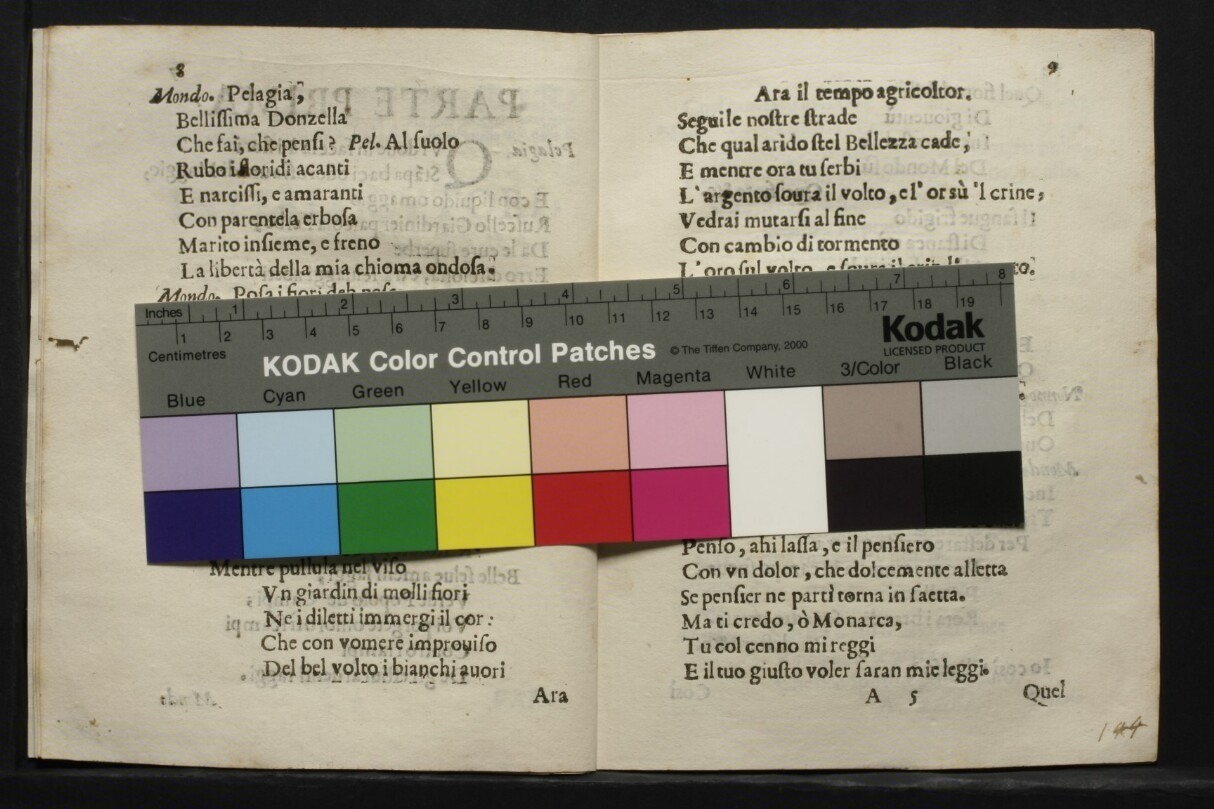 8
Mondo. Pelagia,
Belliſſima Donzella
Che fai, che penſi? Pel. Al ſuolo
Rubo i floridi acanti
E narciſſi, e amaranti
Con parentela erboſa
Marito inſieme, e freno
La libertà della mia chioma ondoſa.
Mondo. Poſa i fiori deh
Inches 1 2 3 4 5 6 7 8
1 2 3 4 5 6 7 8 9 10 11 12 13 14 15 16 17 18 19
Centimetres
KODAK Color Control Patches
© The Tiffen Company, 2000
Kodak
LICENSED PRODUCT
Blue Cyan Green Yellow Red Magenta White 3/Color Black
Mentre pullula nel viſo
Vn giardin di molli fiori
Ne i diletti immergi il cor:
Che con vomere improuiſo
Del bel volto i bianchi auori
Ara
9
Ara il tempo agricoltor.
Segui le noſtre ſtrade
Che qual arido ſtel Bellezza cade,
E mentre ora tu ſerbi
L'argento ſoura il volto, e l'or sù 'l crine,
Vedrai mutarſi al fine
Con cambio di tormento
L'oro ſul volto, e ſoura il
Penſo, ahi laſſa, e il penſiero
Con vn dolor, che dolcemente alletta
Se penſier ne partì torna in ſaetta.
Ma ti credo, ò Monarca,
Tu col cenno mi reggi
E il tuo giuſto voler ſaran mie leggi.
A 5
Quel
144